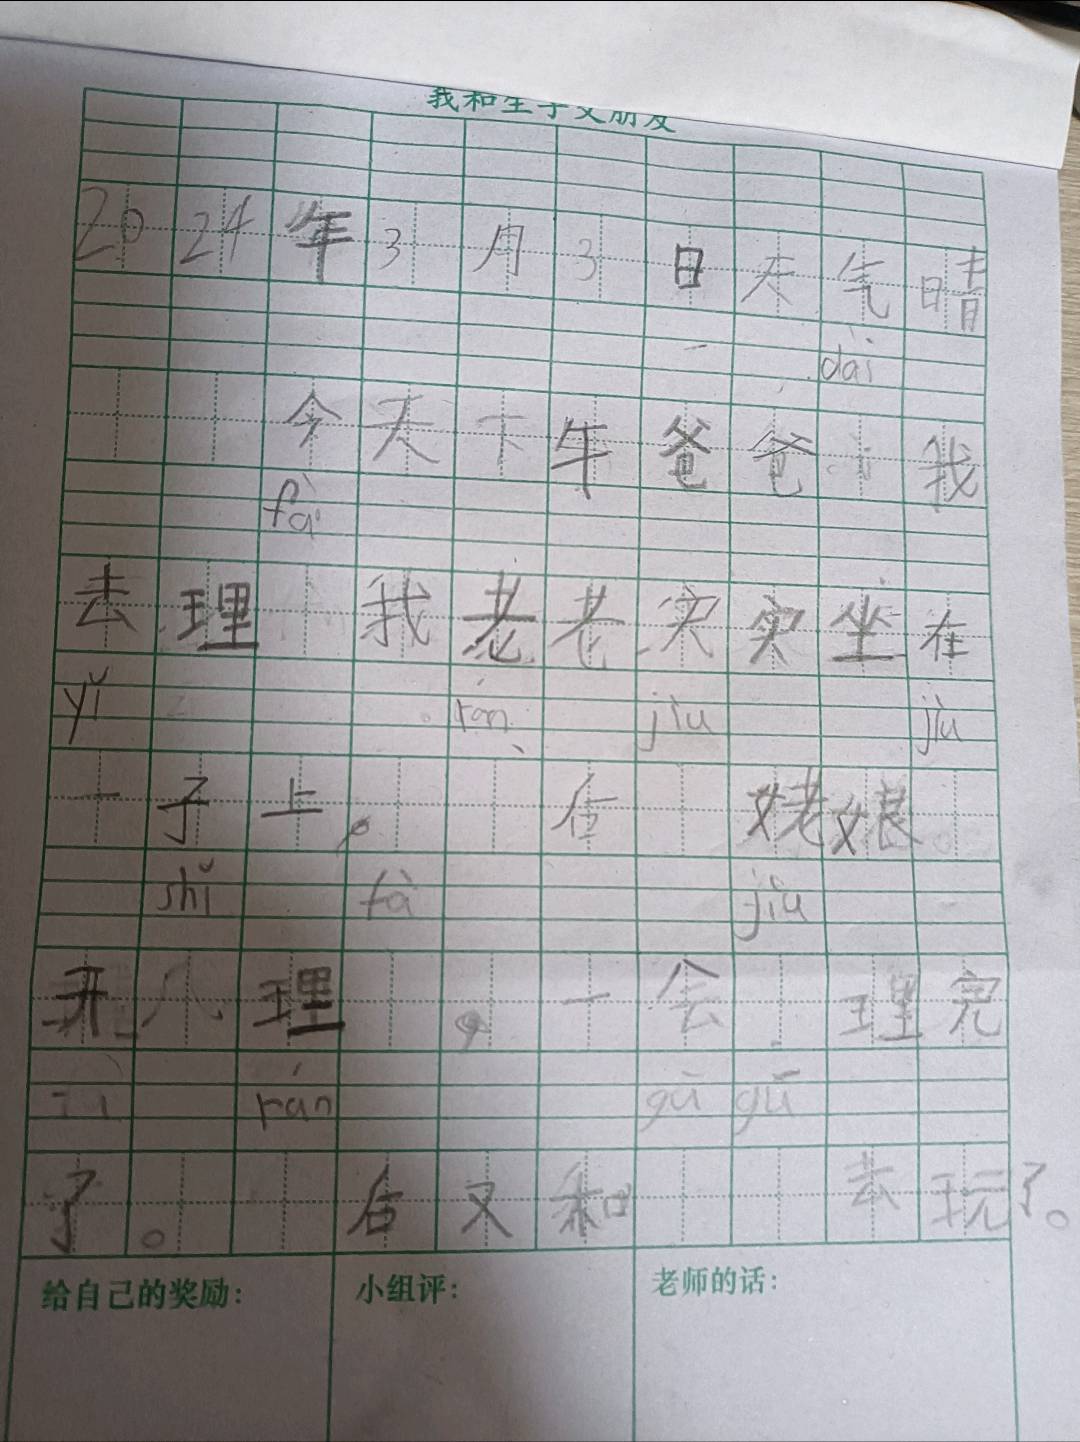 我和生字交朋友
2024年3月3日天气晴
dài
今天下午爸爸 我
fà
去理 我老老实实坐在
yǐ rán jiù jiù
一子上, 后 姥娘
shǐ fà jiù
开 理 。一会 理完
rán gū gū
了。 后又和 去玩了。
给自己的奖励: 小组评: 老师的话: